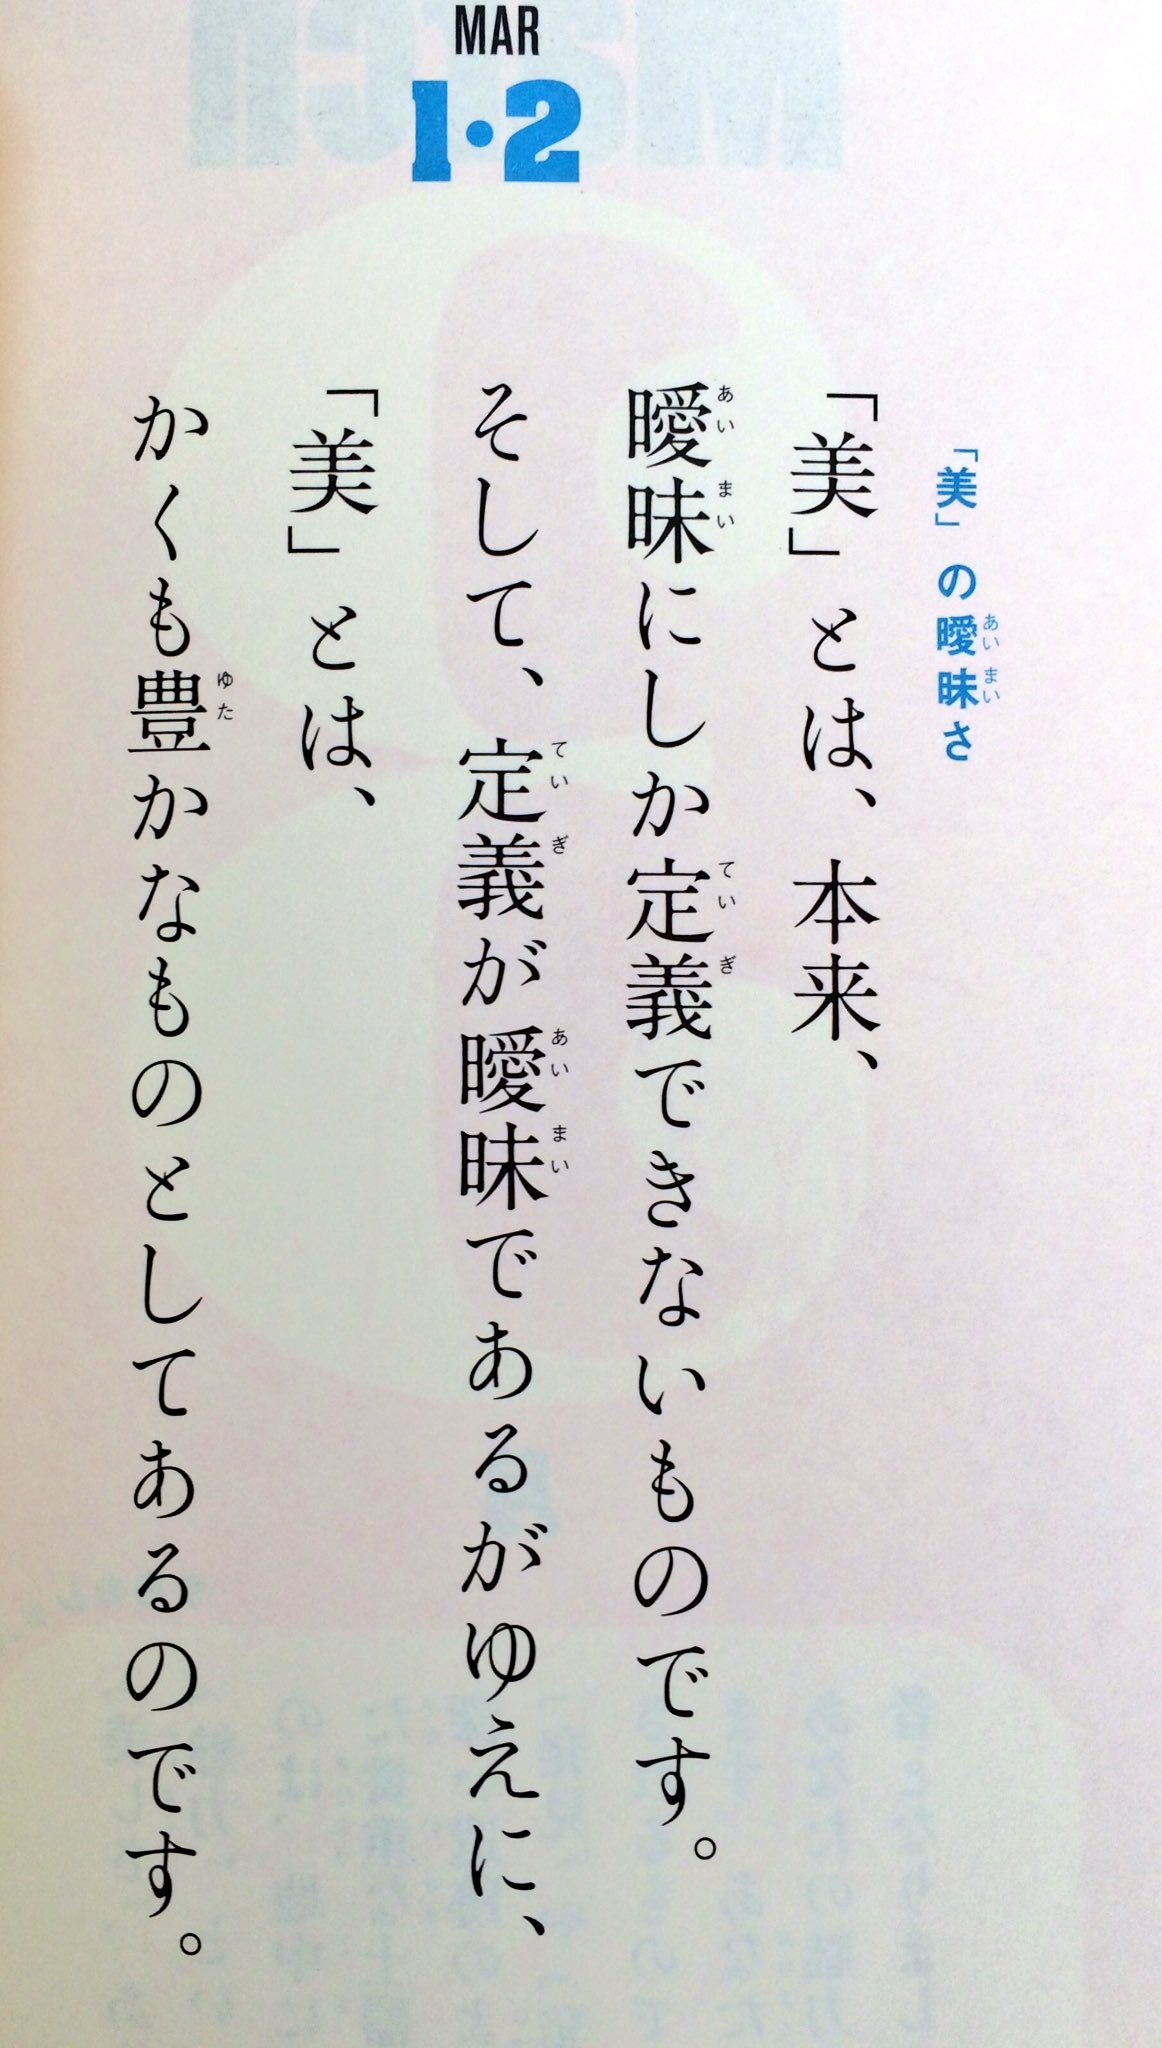 MAR
1・2
「美」の曖昧さ
「美」とは、本来、
曖昧にしか定義できないものです。
そして、定義が曖昧であるがゆえに、
「美」とは、
かくも豊かなものとしてあるのです。